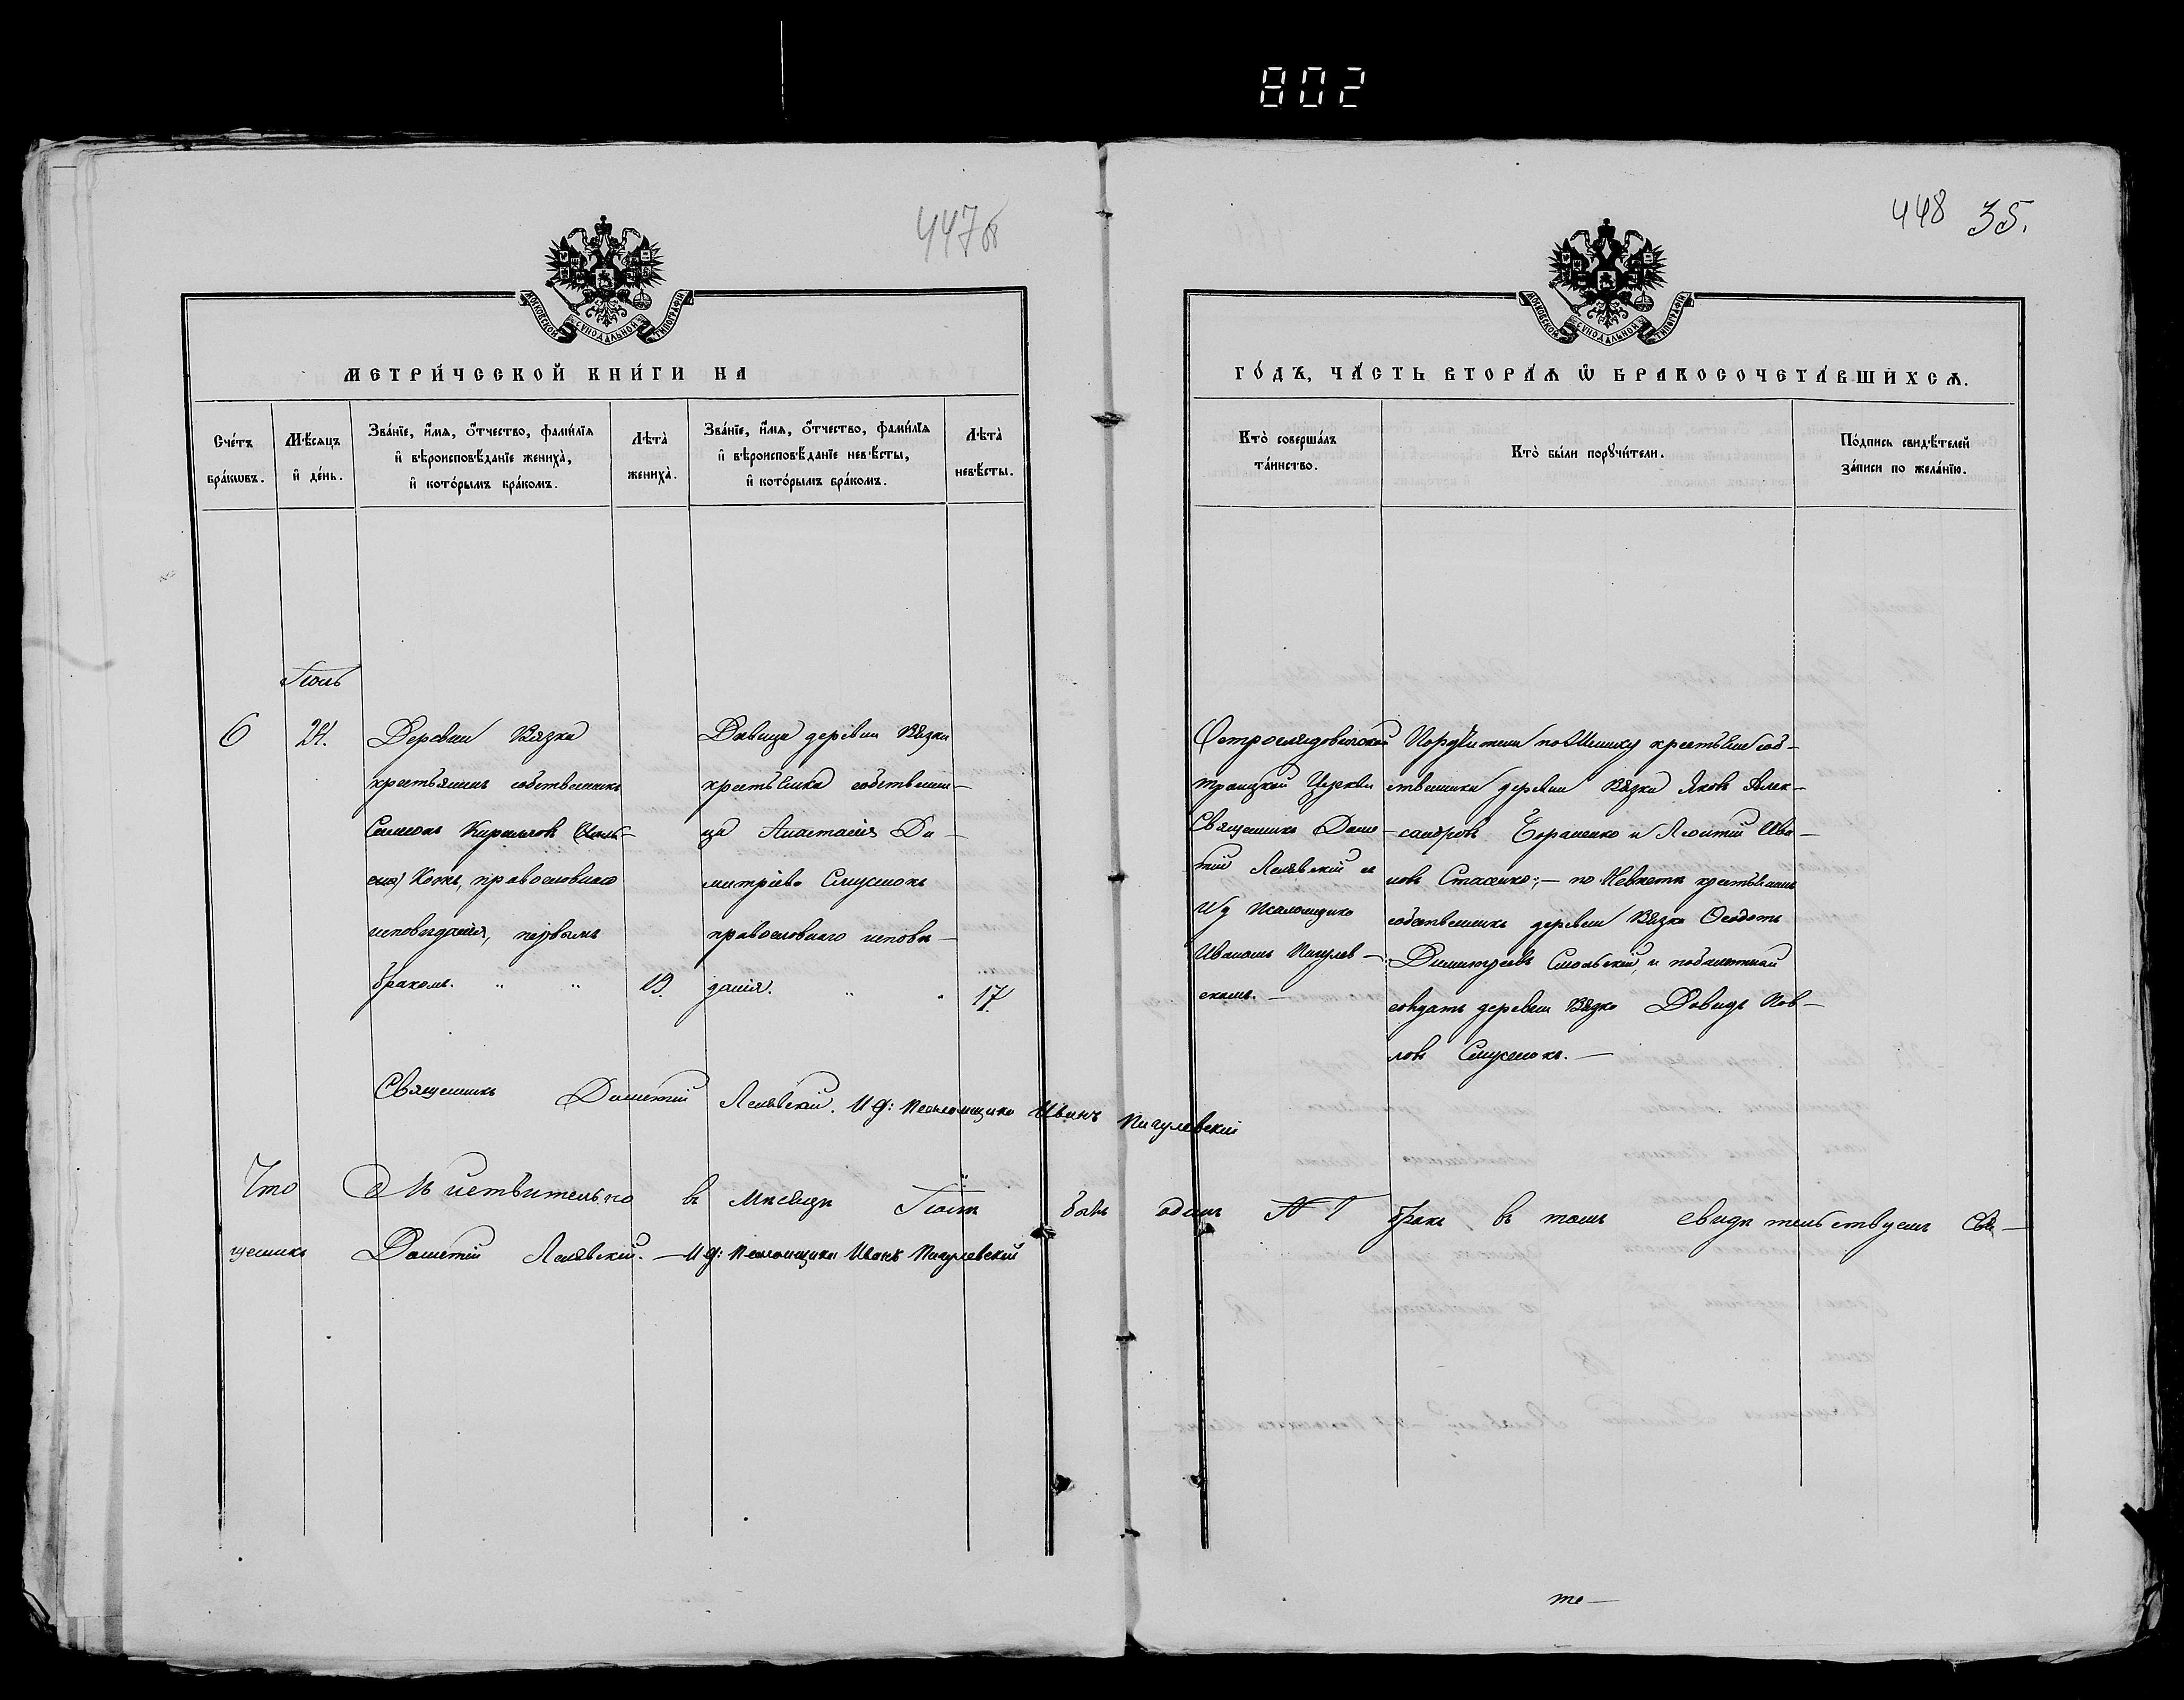 802
447об
448 35.
МОСКОВСКОЙ СѴНОДАЛЬНОЙ ТИПОГРАФІИ
МОСКОВСКОЙ СѴНОДАЛЬНОЙ ТИПОГРАФІИ
МЕТРИ́ЧЕСКОЙ КНИ́ГИ НА
ГО́ДЪ, ЧА́СТЬ ВТОРА́Ѧ Ѡ҆ БРАКОСОЧЕТА́ВШИХСѦ.
Сче́тъ
бра́кѡвъ.
Мѣ́сѧцъ
и҆ де́нь.
Зва́нїе, и҆́мѧ, ѻ҆́тчество, фами́лїѧ
и҆ вѣроисповѣ́данїе жениха̀,
и҆ кото́рымъ бра́комъ.
Лѣ́та̀
жениха̀.
Зва́нїе, и҆́мѧ, ѻ҆́тчество, фами́лїѧ
и҆ вѣроисповѣ́данїе невѣ́сты,
и҆ кото́рымъ бра́комъ.
Лѣ́та̀
невѣ́сты.
Кто̀ соверша́лъ
та́инство.
Кто̀ бы́ли порꙋчи́тели.
По́дпись свидѣ́телей
за́писи по жела́нїю.
Іюль
6
24.
Деревни Вязка
крестьянинъ собственникъ
Симеонъ Кириловъ
Кокъ, православнаго
исповѣданія, первымъ
бракомъ. " "
19.
Дѣвица деревни Вязки
крестьянка собственни-
ца Анастасія Ди-
митріева Слуцкокъ
православнаго исповѣ-
данія. " "
17.
Остроглядовичской
Троицкой Церкви
Священникъ Доме-
тій Лелявскій съ
И д Псаломщика
Иваномъ Пигулев-
скимъ.-
Поручители по жениху крестьяне соб-
ственники деревни Вязки Яковъ Алек-
сандровъ и Леонтій Ива-
новъ Стасенко;- по невѣстѣ крестьянинъ
собственникъ деревни Вязка Ѳеодотъ
Димитріевъ и побилетный
солдатъ деревни Вязка Давидъ Пав-
ловъ -
Священникъ Дометій Лелявскій. И д: Псаломщика Иванъ Пигулевскій
Что дѣйствительно въ мѣсяцѣ Іюлѣ былъ одинъ № 1 бракъ въ томъ свидѣтельствуемъ Свя-
щенникъ Дометій Лелявскій.- И д: Псаломщика Иванъ Пигулевскій
те-